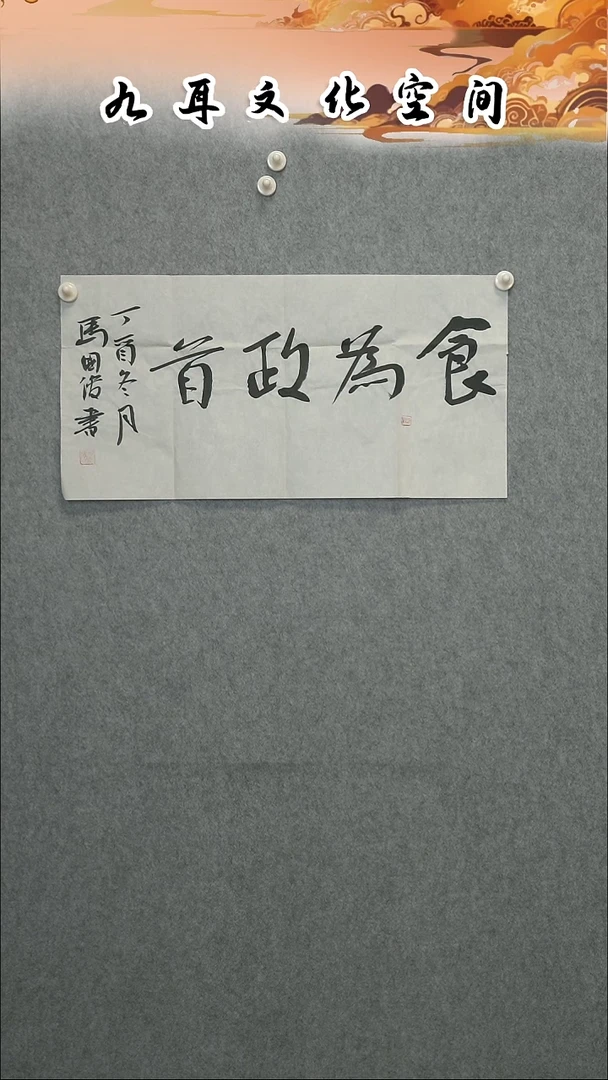 九耳文化空间
食為政首
丁酉冬月
馬国俊書